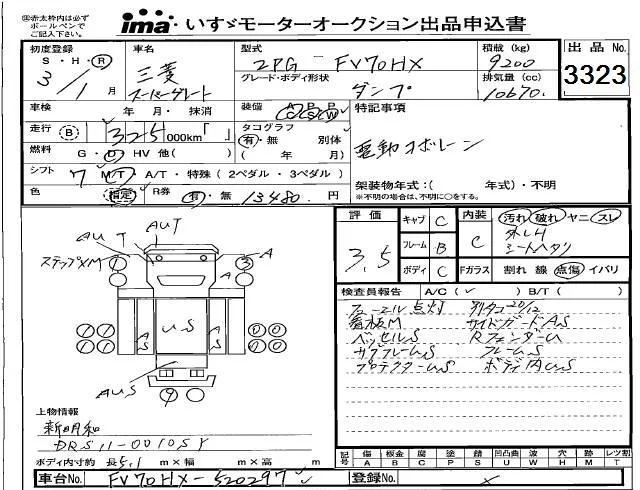 ㊟赤太枠内は必ず
ボールペンで
ご記入下さい。
ima いすゞモーターオークション出品申込書
初度登録 車名 型式 積載 (kg) 出品No.
S・H・R 三菱 2PG - FV70HX 9200
3/1月 スーパーグレート グレード・ボディ形状 排気量 (cc) 3323
ダンプ 10670
車検 年 月・ 抹消 装備 A/C P/S P/W 特記事項
走行 B 325000km「 」 タコグラフ 電動コボレーン
燃料 G・D HV 他( ) 有・無 別体
( 年 月)
シフト 7 M/T・A/T・特殊 (2ペダル・3ペダル) 架装物年式:( 年式)・不明
色 指定 R券 有・無 13480円 ※不明の場合は、不明に○をする。
評価 キャブ C 内装 汚れ 破れ ヤニ スレ
3.5 フレーム B C 外しH
シートヘタリ
ボディ C Fガラス 割れ 線 点傷 イバリ
検査員報告 A/C( ✓ ) B/T( )
点灯 別タコ20/12
看板M サイドガードAS
ベッセルS RフェンダーU
サブフレームS フレームS
プロテクターUS ボディ内US
AUT
AUT
ステップXM 1 3 A
A
A S US A S
AUS
9
上物情報
新明和
DRS11-0010SY
ボディ内寸約 長5.1m×幅 m×高 m
記号 傷 A 板金 B 腐 C 塗 P 錆 S 凹凸曲 U 波 W 穴 H 跡 M レツ割 T
車台No. FV70HX-520297 登録No.